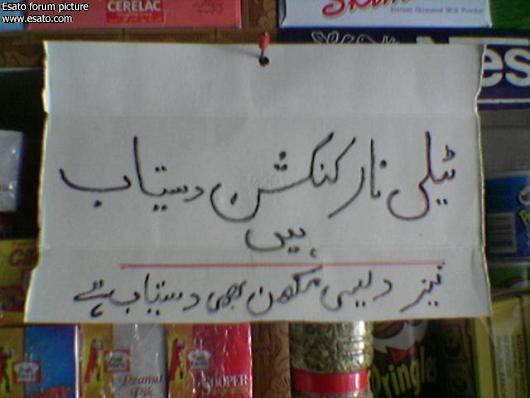 Esato forum picture
www.esato.com
CERELAC
Instant Skimmed Milk Powder
Nes
ٹیلی نار کنکشن دستیاب
ہیں
نیز دیسی مکھن بھی دستیاب ہے
Peanut
Pik
SOOPER
Pringle